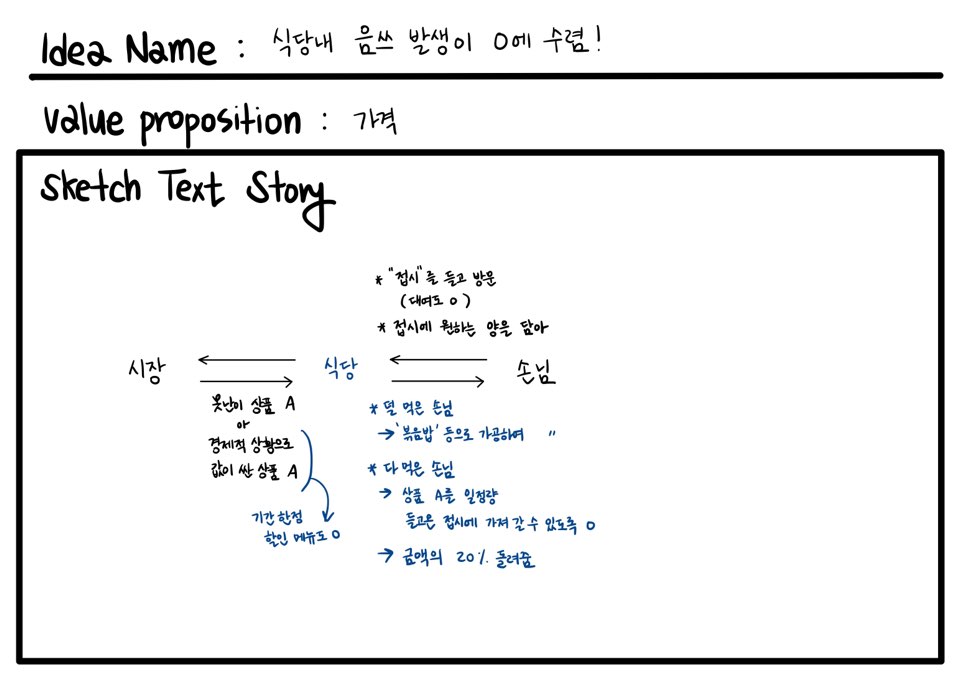 Idea Name : 식당내 음쓰 발생이 0에 수렴!
Value proposition : 가격
Sketch Text Story
* "접시"를 들고 방문
(대여도 0)
* 접시에 원하는 양을 담아
시장
식당
손님
못난이 상품 A
or
경제적 상황으로
값이 싼 상품 A
기간 한정
할인 메뉴도 0
* 덜 먹은 손님
→ '볶음밥' 등으로 가공하여 "
* 다 먹은 손님
→ 상품 A를 일정량
들고온 접시에 가져 갈 수 있도록 0
→ 금액의 20% 돌려줌